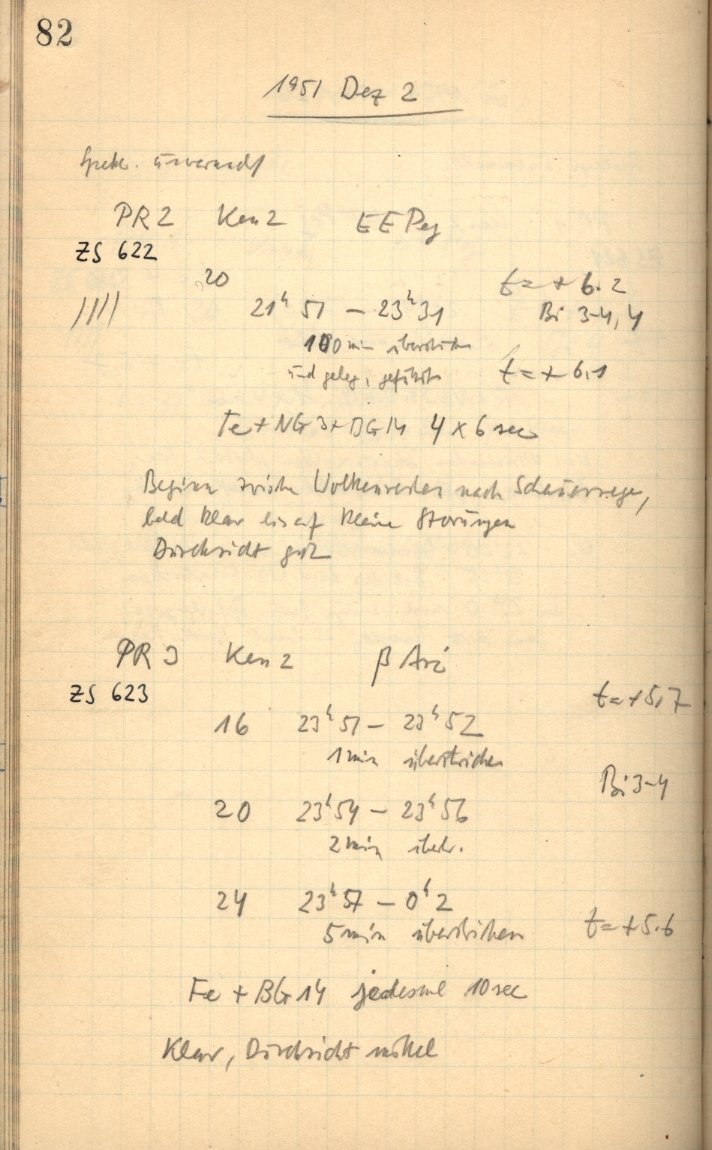 82
1951 Dez 2
Spektr. überwacht
PR2 Ken 2 EE Peg
ZS 622
20 t = + 6.2
21ʰ 51 – 23ʰ 31 Bi 3-4, 4
100 min überstrichen
und geleg. geführt t = + 6,1
Fe + NG 3 + BG 14 4 x 6 sec
Beginn zwischen Wolken nach Schauerregen,
bald klar bis auf kleine Störungen
Durchsicht gut
PR 3 Ken 2 β Ari
ZS 623
t = + 5,7
16 23ʰ 51 – 23ʰ 52
1 min überstrichen
Bi 3-4
20 23ʰ 54 – 23ʰ 56
2 min überstr.
24 23ʰ 57 – 0ʰ 2
5 min überstrichen t = + 5.6
Fe + BG 14 jedesmal 10 sec
Klar, Durchsicht mittel